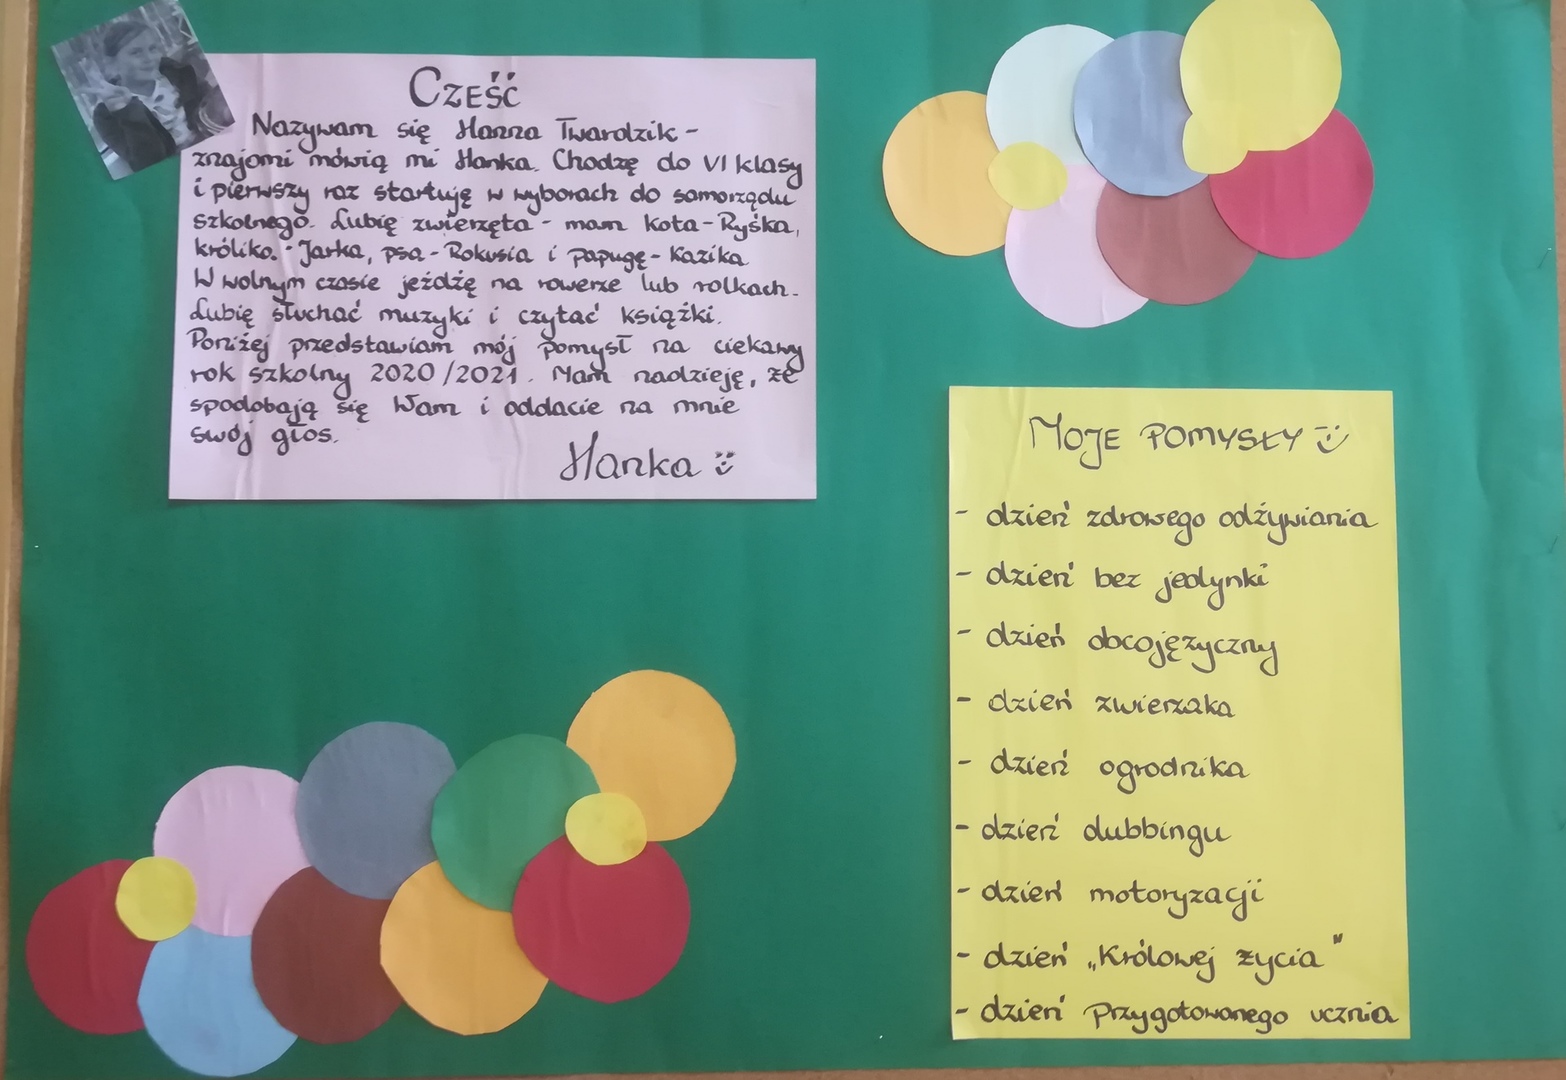 CZEŚĆ
Nazywam się Hanna Twardzik -
znajomi mówią mi Hanka. Chodzę do VI klasy
i pierwszy raz startuję w wyborach do samorządu
szkolnego. Lubię zwierzęta - mam kota - Ryśka,
królika - Jarka, psa - Rokusia i papugę - Kazika
W wolnym czasie jeżdżę na rowerze lub rolkach.
Lubię słuchać muzyki i czytać książki.
Poniżej przedstawiam mój pomysł na ciekawy
rok szkolny 2020/2021. Mam nadzieję, że
spodobają się Wam i oddacie na mnie
swój głos.
Hanka
MOJE POMYSŁY
- dzień zdrowego odżywiania
- dzień bez jedynki
- dzień obcojęzyczny
- dzień zwierzaka
- dzień ogrodnika
- dzień dubbingu
- dzień motoryzacji
- dzień „Królowej życia"
- dzień przygotowanego ucznia